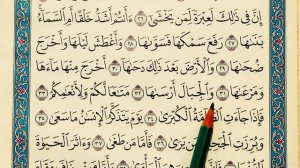 إِنَّ فِى ذَٰلِكَ لَعِبْرَةً لِّمَن يَخْشَىٰٓ ٢٦ ءَأَنتُمْ أَشَدُّ خَلْقًا أَمِ ٱلسَّمَآءُ
بَنَىٰهَا ٢٧ رَفَعَ سَمْكَهَا فَسَوَّىٰهَا ٢٨ وَأَغْطَشَ لَيْلَهَا وَأَخْرَجَ
ضُحَىٰهَا ٢٩ وَٱلْأَرْضَ بَعْدَ ذَٰلِكَ دَحَىٰهَآ ٣٠ أَخْرَجَ مِنْهَا مَآءَهَا
وَمَرْعَىٰهَا ٣١ وَٱلْجِبَالَ أَرْسَىٰهَا ٣٢ مَتَٰعًا لَّكُمْ وَلِأَنْعَٰمِكُمْ ٣٣
فَإِذَا جَآءَتِ ٱلطَّآمَّةُ ٱلْكُبْرَىٰ ٣٤ يَوْمَ يَتَذَكَّرُ ٱلْإِنسَٰنُ مَا سَعَىٰ ٣٥
وَبُرِّزَتِ ٱلْجَحِيمُ لِمَن يَرَىٰ ٣٦ فَأَمَّا مَن طَغَىٰ ٣٧ وَءَاثَرَ ٱلْحَيَوٰةَ